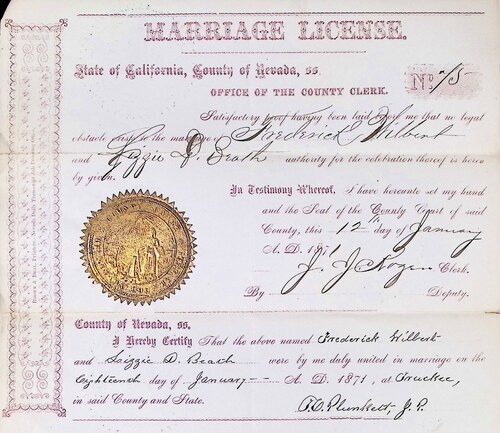 MARRIAGE LICENSE.
State of California, County of Nevada, ss.
OFFICE OF THE COUNTY CLERK.
No. 15
Satisfactory proof having been laid before me that no legal
obstacle exists to the marriage of Frederick Wilbert
and Lizzie D. Beath authority for the celebration thereof is hereby
by given.
In Testimony Whereof, I have hereunto set my hand
and the Seal of the County Court of said
County, this 12th day of January
A. D. 1871
J. J. Rogers Clerk.
By Deputy.
County of Nevada, ss.
I Hereby Certify That the above named Frederick Wilbert
and Leizzie D. Beach were by me duly united in marriage on the
Eighteenth day of January A. D. 1871, at Truckee,
in said County and State.
P. O. Plunkett, J. P.